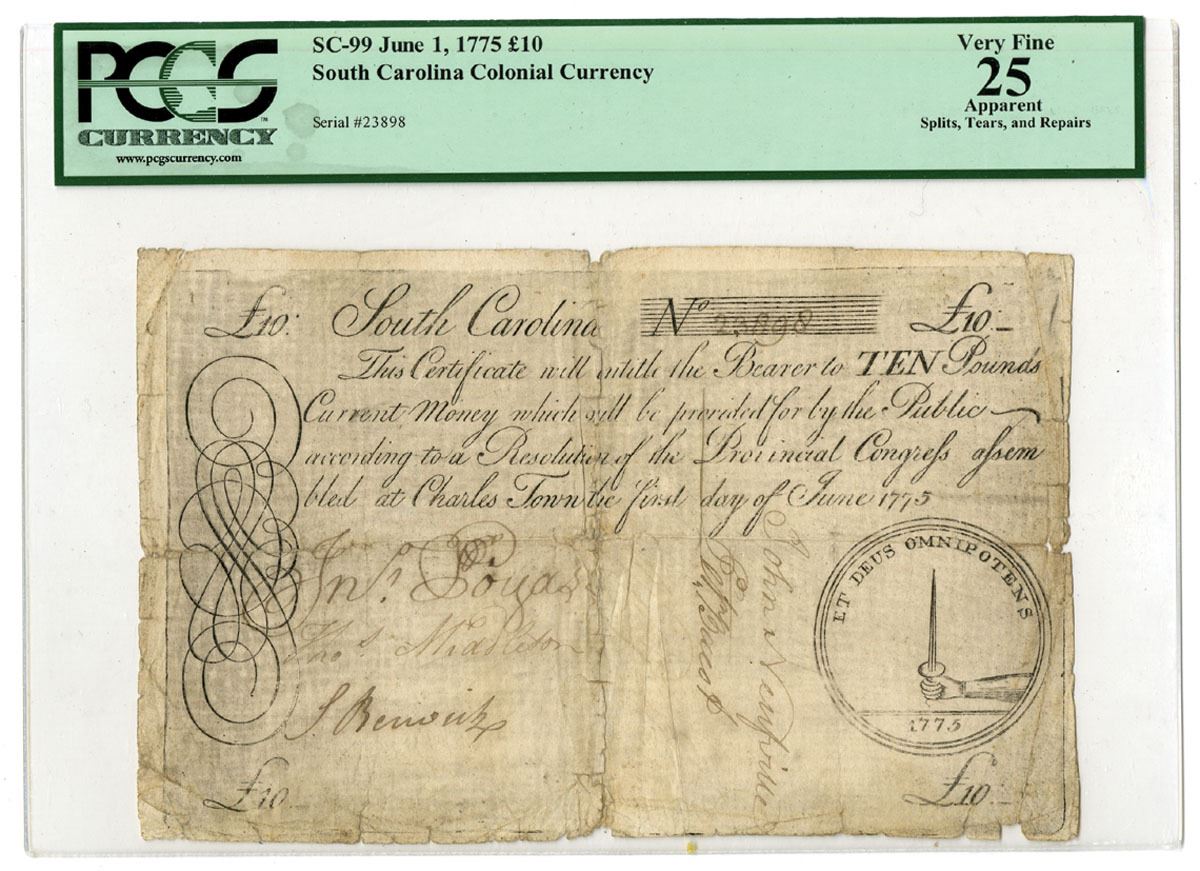 PCGS
CURRENCY
www.pcgscurrency.com
SC-99 June 1, 1775 £10
South Carolina Colonial Currency
Serial #23898
Very Fine
25
Apparent
Splits, Tears, and Repairs
£10: South Carolina No 23898 £10:
This Certificate will entitle the Bearer to TEN Pounds
Current Money which will be provided for by the Public
according to a Resolution of the Provincial Congress assem
bled at Charles Town the first day of June 1775
ET DEUS OMNIPOTENS
1775
Jno. Poyas
Thos. Middleton
S Berwick
John
£10
£10